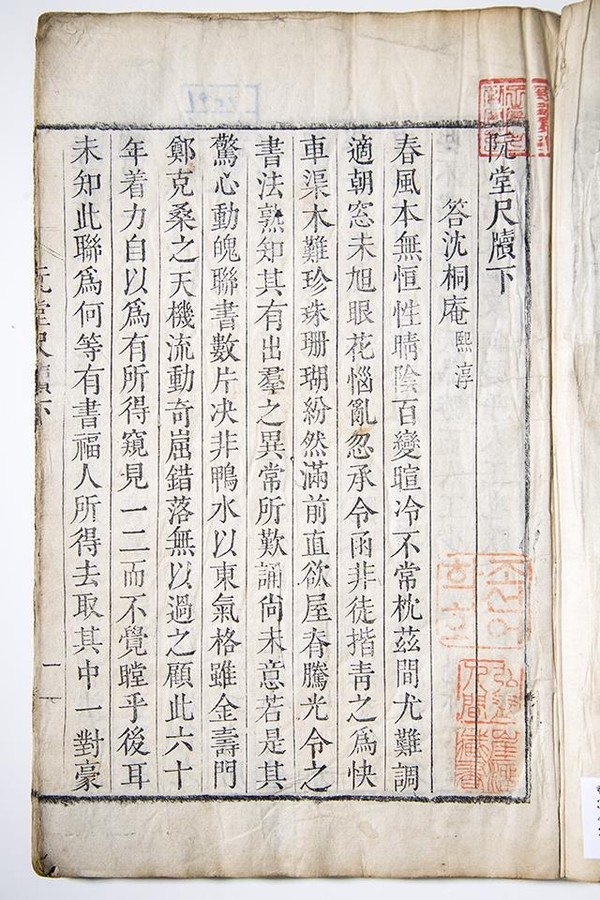 阮堂尺牘下
答沈桐庵熙淳
春風本無恒性晴陰百變暄冷不常枕茲間尤難調
適朝窓未旭眼花惱亂忽承令函非徒揩靑之爲快
車渠木難珍珠珊瑚紛然滿前直欲屋脊騰光令之
書法熟知其有出羣之異常所歎誦尙未意若是其
驚心動魄聯書數片决非鴨水以東氣格雖金壽門
鄭克桑之天機流動奇崛錯落無以過之顧此六十
年着力自以爲有所得窺見一二而不覺瞠乎後耳
未知此聯爲何等有書福人所得去取其中一對豪
阮堂尺牘下
一
조선어
학회